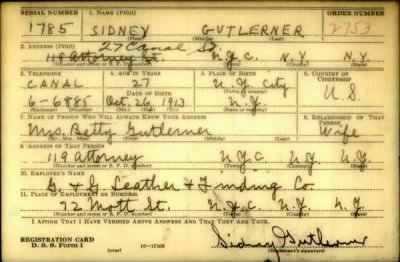 SERIAL NUMBER 1. NAME (Print) ORDER NUMBER
1785 SIDNEY GUTLERNER 2753
(First) (Middle) (Last)
27 Canal St.
2. ADDRESS (Print)
119 Attorney St. N.Y.C. N.Y N.Y.
(Number and street or R. F. D. number) (Town) (County) (State)
3. TELEPHONE 4. AGE IN YEARS 5. PLACE OF BIRTH 6. COUNTRY OF CITIZENSHIP
CANAL 27 N.Y. City
DATE OF BIRTH (Town or county) U.S.
6-6885 Oct. 26, 1913 N.Y.
(Exchange) (Number) (Mo.) (Day) (Yr.) (State or country)
7. NAME OF PERSON WHO WILL ALWAYS KNOW YOUR ADDRESS 8. RELATIONSHIP OF THAT PERSON
Mrs. Betty Gutlerner Wife
(Mr., Mrs., Miss) (First) (Middle) (Last)
9. ADDRESS OF THAT PERSON
119 Attorney N.Y.C. N.Y. N.Y.
(Number and street or R. F. D. number) (Town) (County) (State)
10. EMPLOYER'S NAME
G. & G Leather & Finding Co.
11. PLACE OF EMPLOYMENT OR BUSINESS
72 Mott St. N.Y.C N.Y. N.Y.
(Number and street or R. F. D. number) (Town) (County) (State)
I AFFIRM THAT I HAVE VERIFIED ABOVE ANSWERS AND THAT THEY ARE TRUE.
REGISTRATION CARD
D. S. S. Form 1 (over) 16-17105 Sidney Gutlerner
(Registrant's signature)